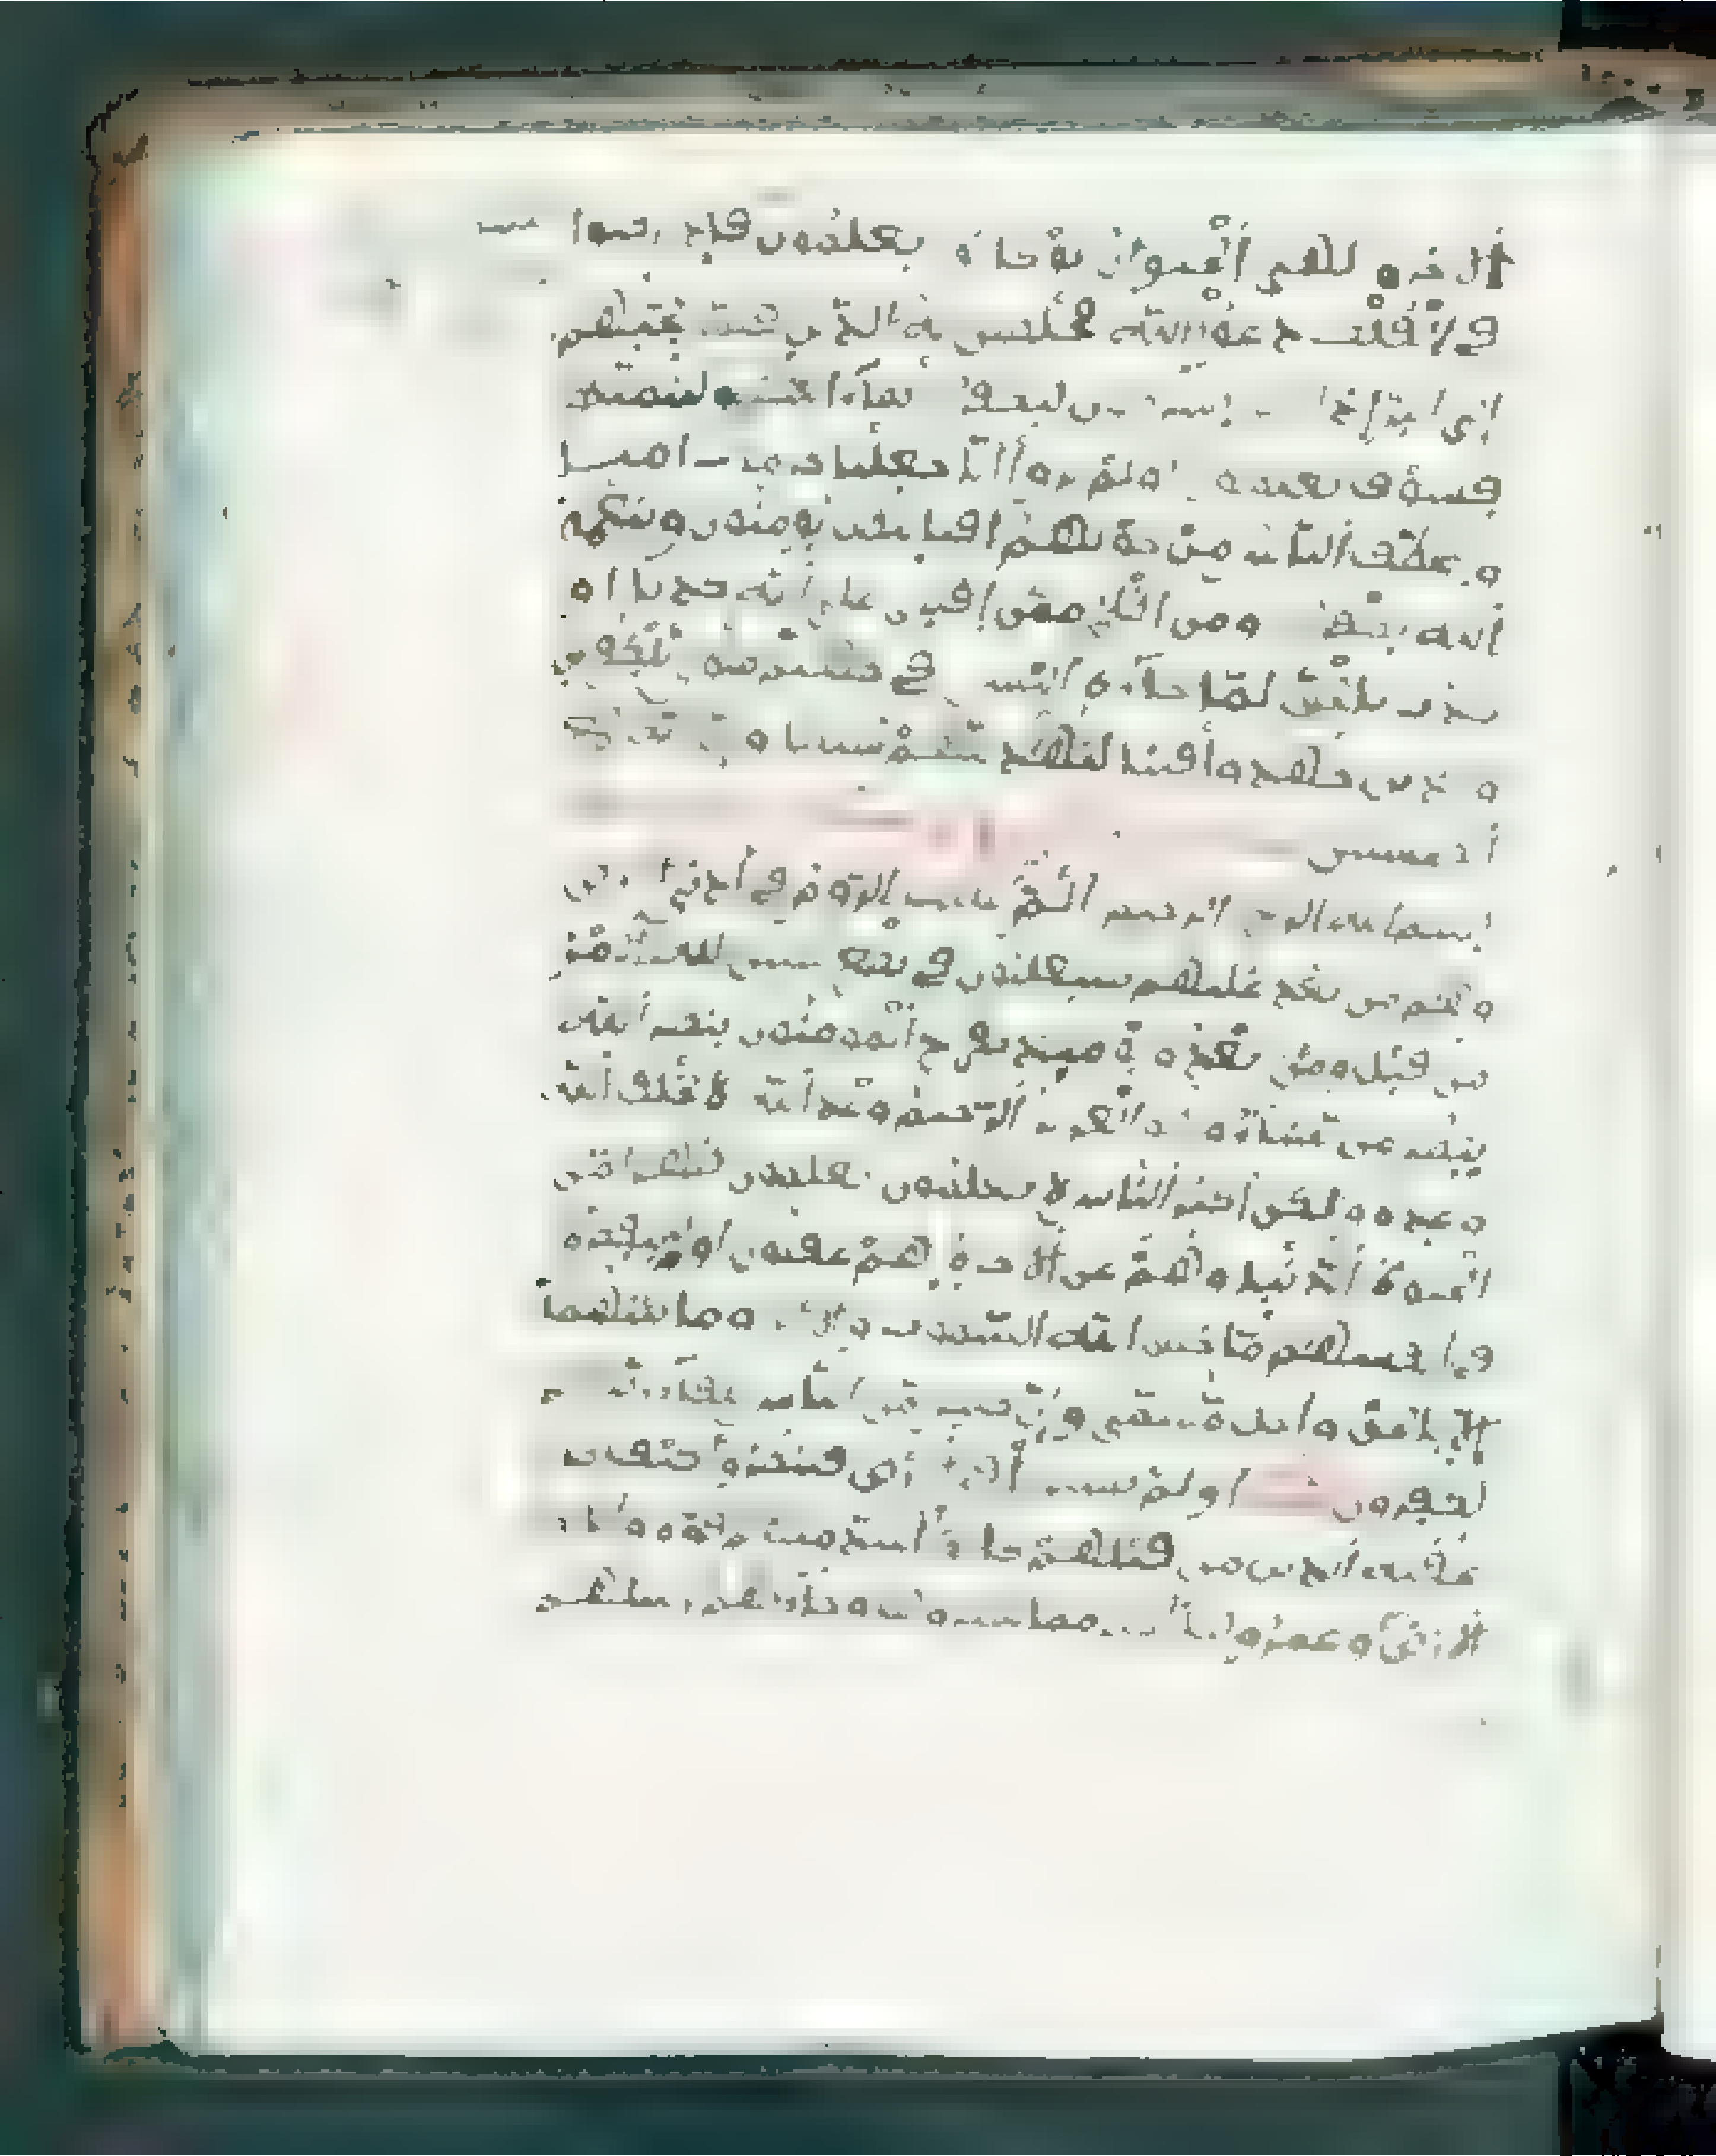 الاخرة لهي الحيوان لو كانوا يعلمون فاذا ركبوا
في الفلك دعوا الله مخلصين له الدين فلما نجيهم
الى البر اذا هم يشركون ليكفروا بما اتينهم وليتمتعوا
فسوف يعلمون اولم يروا انا جعلنا حرما امنا
و يتخطف الناس من حولهم افبالبطل يومنون وبنعمة
الله يكفرون ومن اظلم ممن افترى على الله كذبا او
كذب بالحق لما جاءه اليس في جهنم مثوى للكفرين
و الذين جهدوا فينا لنهدينهم سبلنا وان الله لمع
المحسنين
بسم الله الرحمن الرحيم الم غلبت الروم في ادنى الارض
وهم من بعد غلبهم سيغلبون في بضع سنين لله الامر
من قبل ومن بعد و يوميذ يفرح المومنون بنصر الله
ينصر من يشاء وهو العزيز الرحيم وعد الله لا يخلف الله
وعده ولكن اكثر الناس لا يعلمون يعلمون ظهرا من
الحيوة الدنيا وهم عن الاخرة هم غفلون اولم يتفكروا
في انفسهم ما خلق الله السموت والارض وما بينهما
الا بالحق واجل مسمى وان كثيرا من الناس بلقاء ربهم
لكفرون اولم يسيروا في الارض فينظروا كيف كان
عقبة الذين من قبلهم كانوا اشد منهم قوة واثاروا
الارض وعمروها اكثر مما عمروها وجاءتهم رسلهم